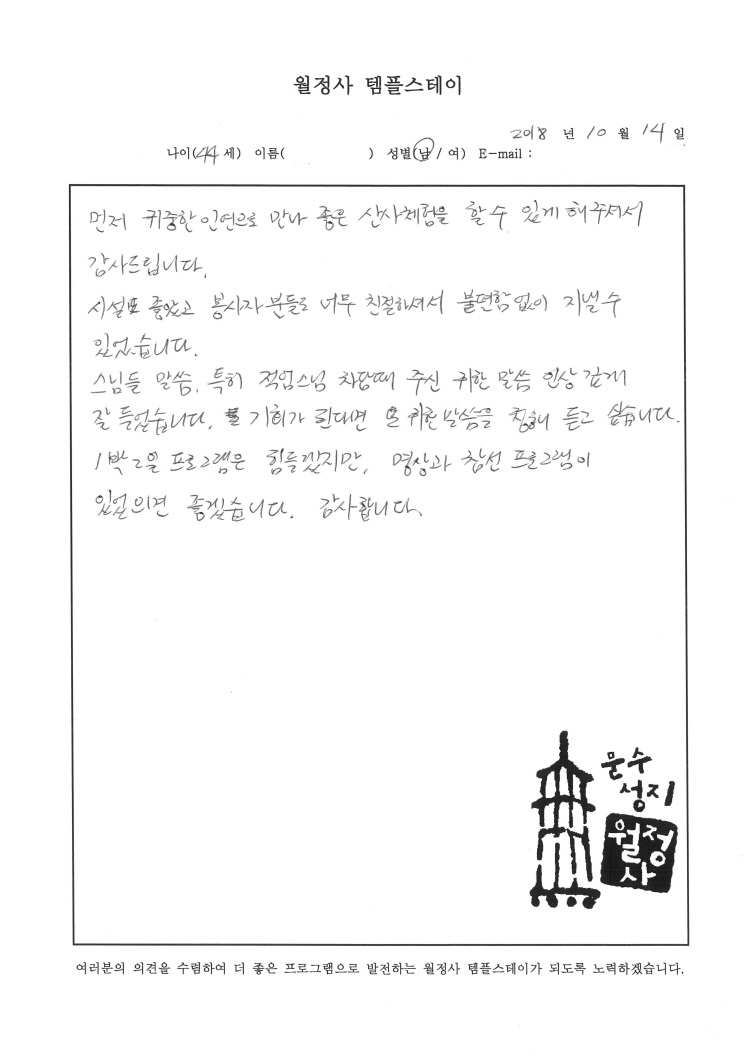 월정사 템플스테이
2018 년 10 월 14 일
나이(44 세) 이름( ) 성별(남 / 여) E-mail :
먼저 귀중한 인연으로 만나 좋은 산사체험을 할 수 있게 해주셔서
감사드립니다.
시설도 좋았고 봉사자분들도 너무 친절하셔서 불편함없이 지낼 수
있었습니다.
스님들 말씀, 특히 적엄스님 차담때 주신 귀한 말씀 인상 깊게
잘 들었습니다. 기회가 된다면 귀한말씀을 듣고 싶습니다.
1박2일 프로그램은 힘들겠지만, 명상과 참선 프로그램이
있었으면 좋겠습니다. 감사합니다.
문수
성지
월정
사
여러분의 의견을 수렴하여 더 좋은 프로그램으로 발전하는 월정사 템플스테이가 되도록 노력하겠습니다.